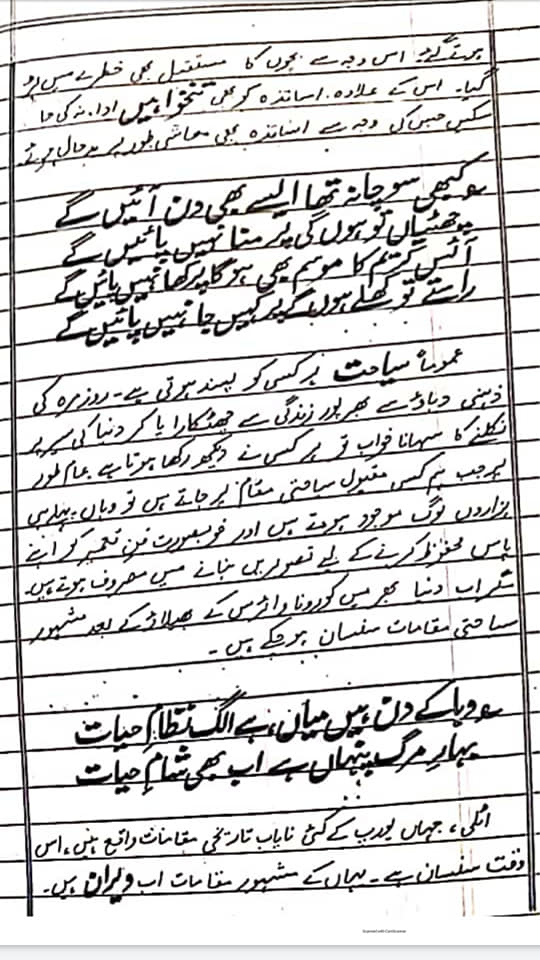 ہوتے گئے۔ اس وجہ سے بچوں کا مستقبل بھی خطرے میں پڑ
گیا۔ اس کے علاوہ، اساتذہ کو بھی تنخواہیں ادا نہ کی جا
سکیں جس کی وجہ سے اساتذہ بھی معاشی طور پر بدحال ہوئے۔
کبھی سوچا نہ تھا ایسے بھی دن آئیں گے
چھٹیاں تو ہوں گی پر منا نہیں پائیں گے
آئس کریم کا موسم بھی ہو گا پر کھا نہیں پائیں گے
راستے تو کھلے ہوں گے پر کہیں جا نہیں پائیں گے
عموماً سیاحت ہر کسی کو پسند ہوتی ہے۔ روزمرہ کی
ذہنی دباؤ سے بھرپور زندگی سے چھٹکارا پا کر دنیا کی سیر پر
نکلنے کا سہانا خواب تو ہر کسی نے دیکھ رکھا ہوتا ہے عام طور
پر جب ہم کسی مقبول سیاحتی مقام پر جاتے ہیں تو وہاں پہلے ہی
ہزاروں لوگ موجود ہوتے ہیں اور خوبصورت فن تعمیر کو اپنے
پاس محفوظ کرنے کے لیے تصویریں بنانے میں مصروف ہوتے ہیں۔
مگر اب دنیا بھر میں کورونا وائرس کے پھیلاؤ کے بعد مشہور
سیاحتی مقامات سنسان ہو چکے ہیں۔
وبا کے دن ہیں میاں، ہے الگ نظامِ حیات
بہارِ مرگ پنہاں ہے اب بھی شامِ حیات
اٹلی، جہاں یورپ کے کئی نایاب تاریخی مقامات واقع ہیں، اس
وقت سنسان ہے۔ یہاں کے مشہور مقامات اب ویران ہیں۔
Scanned with CamScanner